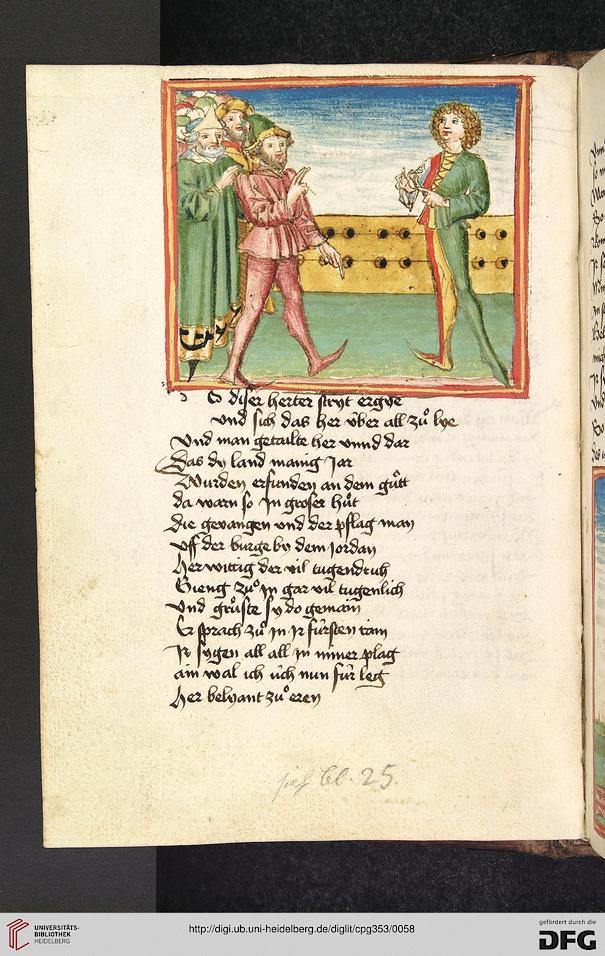 So diser herter stryt ergye
Vnd sich das her v̈ber all zů lye
Vnd man getailte her vnnd dar
Das dy land manig Jar
Wurden erfunden an dem gůtt
da warn so Jn groser hůt
die gevangen vnd der pflag man
vff der burge by dem Jordan
Her wittig der vil tugendrich
Gieng zů in gar vil tugenlich
Vnd grůste sy do gemain
Er sprach zů in Jr fürsten rain
Jr sygen all all in miner plag
ain wal ich üch nun für leg
her belyant zů eren
bl. 25.
UNIVERSITÄTS-
BIBLIOTHEK
HEIDELBERG
http://digi.ub.uni-heidelberg.de/diglit/cpg353/0058
gefördert durch die
DFG